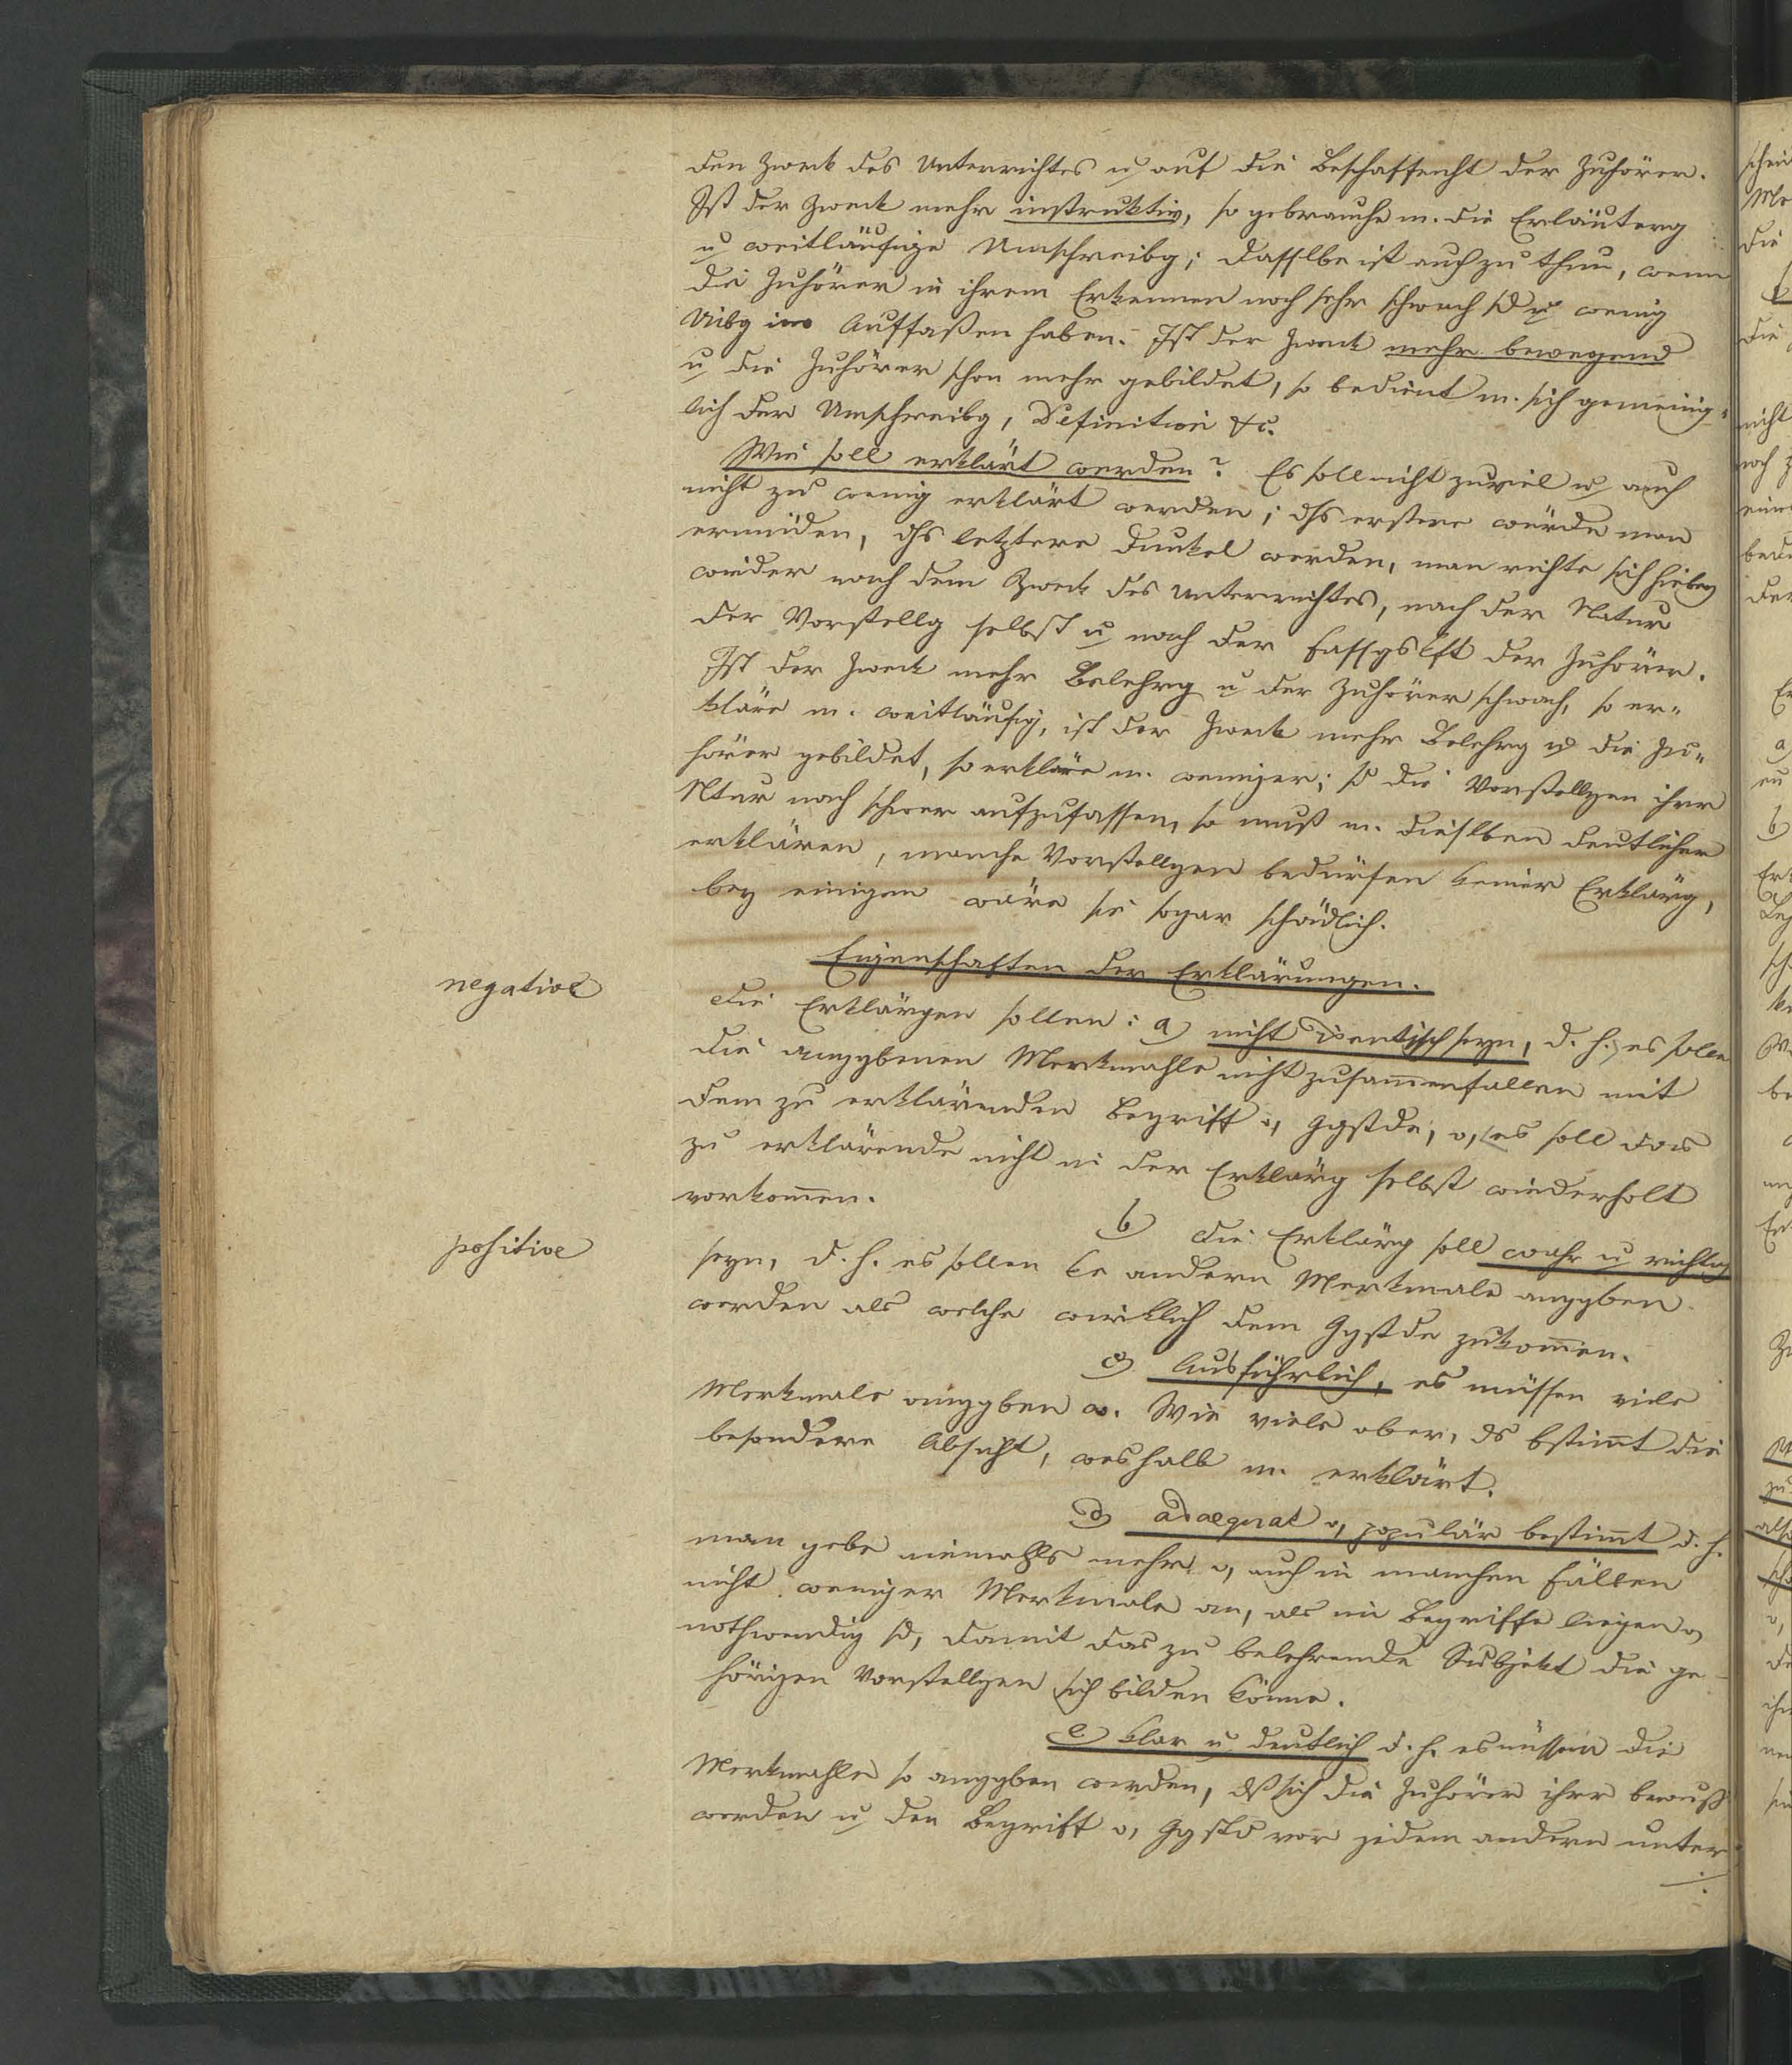 den Zweck des Unterrichtes u. auf die Beschaffenht der Zuhörer.
Ist der Zweck mehr instruktiv, so gebrauche m. die Erläuterg
u weitläufige Umschreibg; dasselbe ist auch zu thun, wenn
die Zuhörer in ihrem Erkennen noch sehr schwach sd u wenig
Uibg im Auffaßen haben. Ist der Zweck mehr bewegend
u die Zuhörer schon mehr gebildet, so bedient m. sich gemeinig-
lich der Umschreibg, Definition &c.
Wie soll erklärt werden? Es soll nicht zuviel u auch
nicht zu wenig erklärt werden; dſs erstere würde man
ermüden, dſs letztere dunkel werden, man richte sich hiebey
wieder nach dem Zweck des Unterrichtes, nach der Natur
der Vorstellg selbst u nach der Fassgskft der Zuhörer.
Ist der Zweck mehr Belehrg u der Zuhörer schwach, so er-
kläre m. weitläufig, ist der Zweck mehr Belehrg u die Zu-
hörer gebildet, so erkläre m. weniger; sd die Vorstellgen ihrer
Ntur nach schwer aufzufassen, so muß m. dieselben deutlicher
erklären, manche Vorstellgen bedürfen keiner Erklärg,
bey einigen wäre sie sogar schädlich.
Eigenschaften der Erklärungen.
negative
Die Erklärgen sollen: a) nicht identisch seyn, d. h. es sollen
die anggbenen Merkmahle nicht zusam̅enfallen mit
dem zu erklärenden Begriff o, Ggstde, o, es soll das
zu erklärende nicht in der Erklärg selbst wiederholt
vorkom̅en.
positive
b) die Erklärg soll wahr u richtig
seyn, d. h. es sollen ke andern Merkmale anggben
werden als welche wirklich dem Ggstde zukom̅en.
c) Ausführlich, es müssen viele
Merkmale anggben w. Wie viele aber, ds bstim̅t die
besondere Absicht, weshalb m. erklärt.
d) adaequat o, populär bestim̅t d. h.
man gebe niemahls mehr o, auch in manchen Fällen
nicht weniger Merkmale an, als im Begriffe liegen o,
nothwendig sd, damit das zu belehrende Subjekt die ge-
hörigen Vorstellgen sich bilden könne.
e) klar u deutlich d. h. es müssen die
Merkmahle so anggben werden, dß sich die Zuhörer ihrer bewußt
werden u den Begriff o, Ggstd vor jedem andern unter